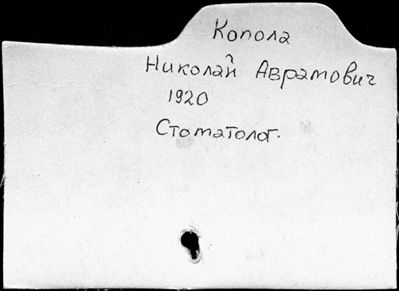 Копола
Николай Аврамович
1920
Стоматолог.